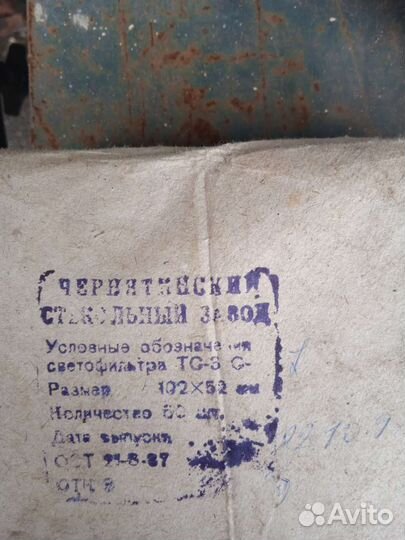 ЧЕРНЯТИНСКИЙ
СТЕКОЛЬНЫЙ ЗАВОД
Условные обозначения
светофильтра ТС-3 С-
Размер 102×52 мм
Количество шт.
Дата выпуска
ОСТ 21-6-87
ОТК
Avito